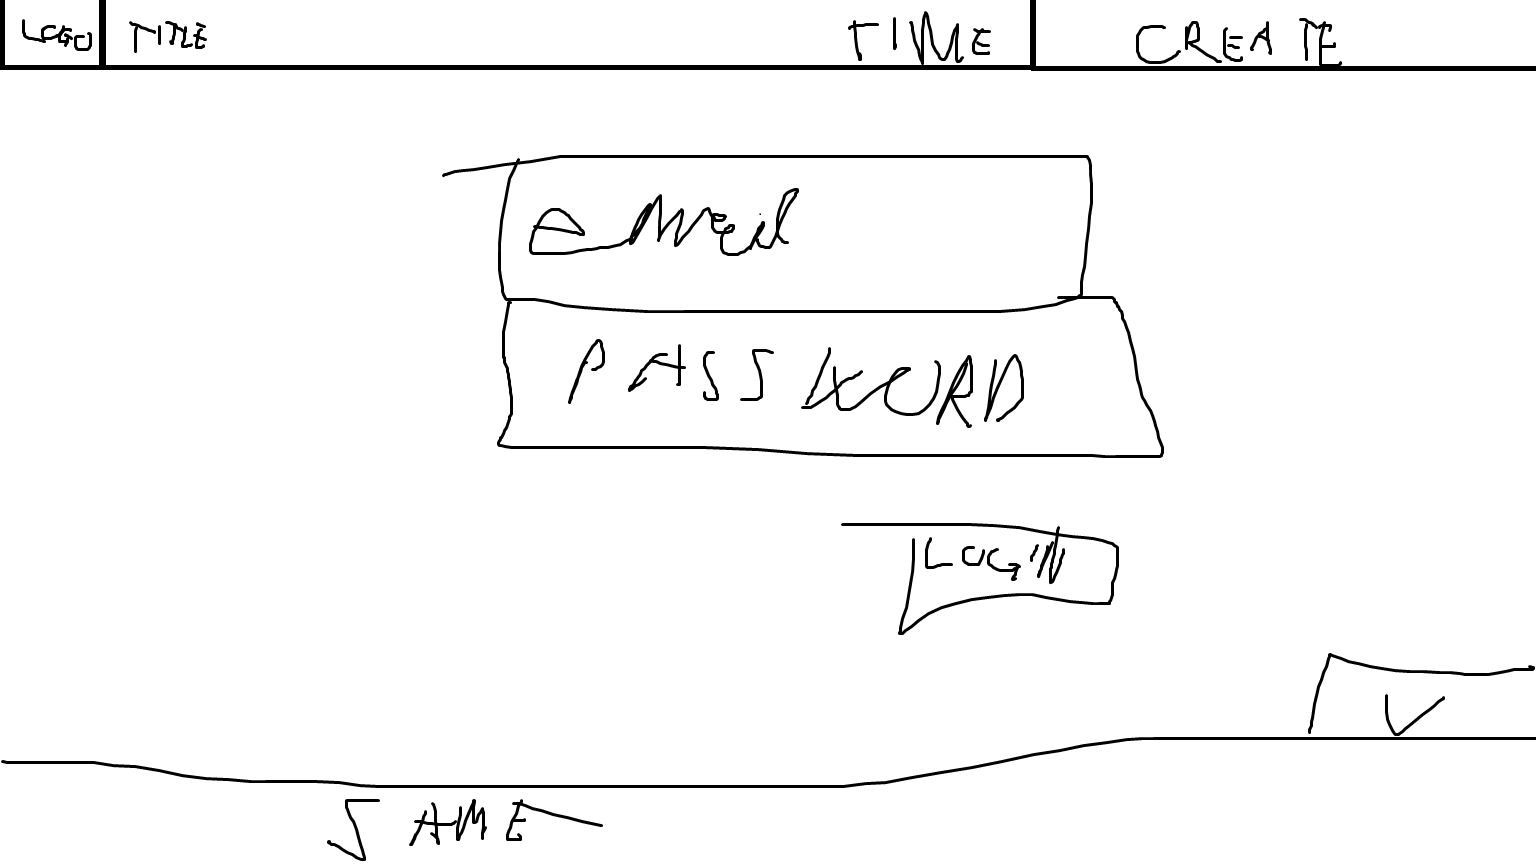 LOGO TITLE TIME CREATE
email
PASSWORD
LOGIN
V
SAME